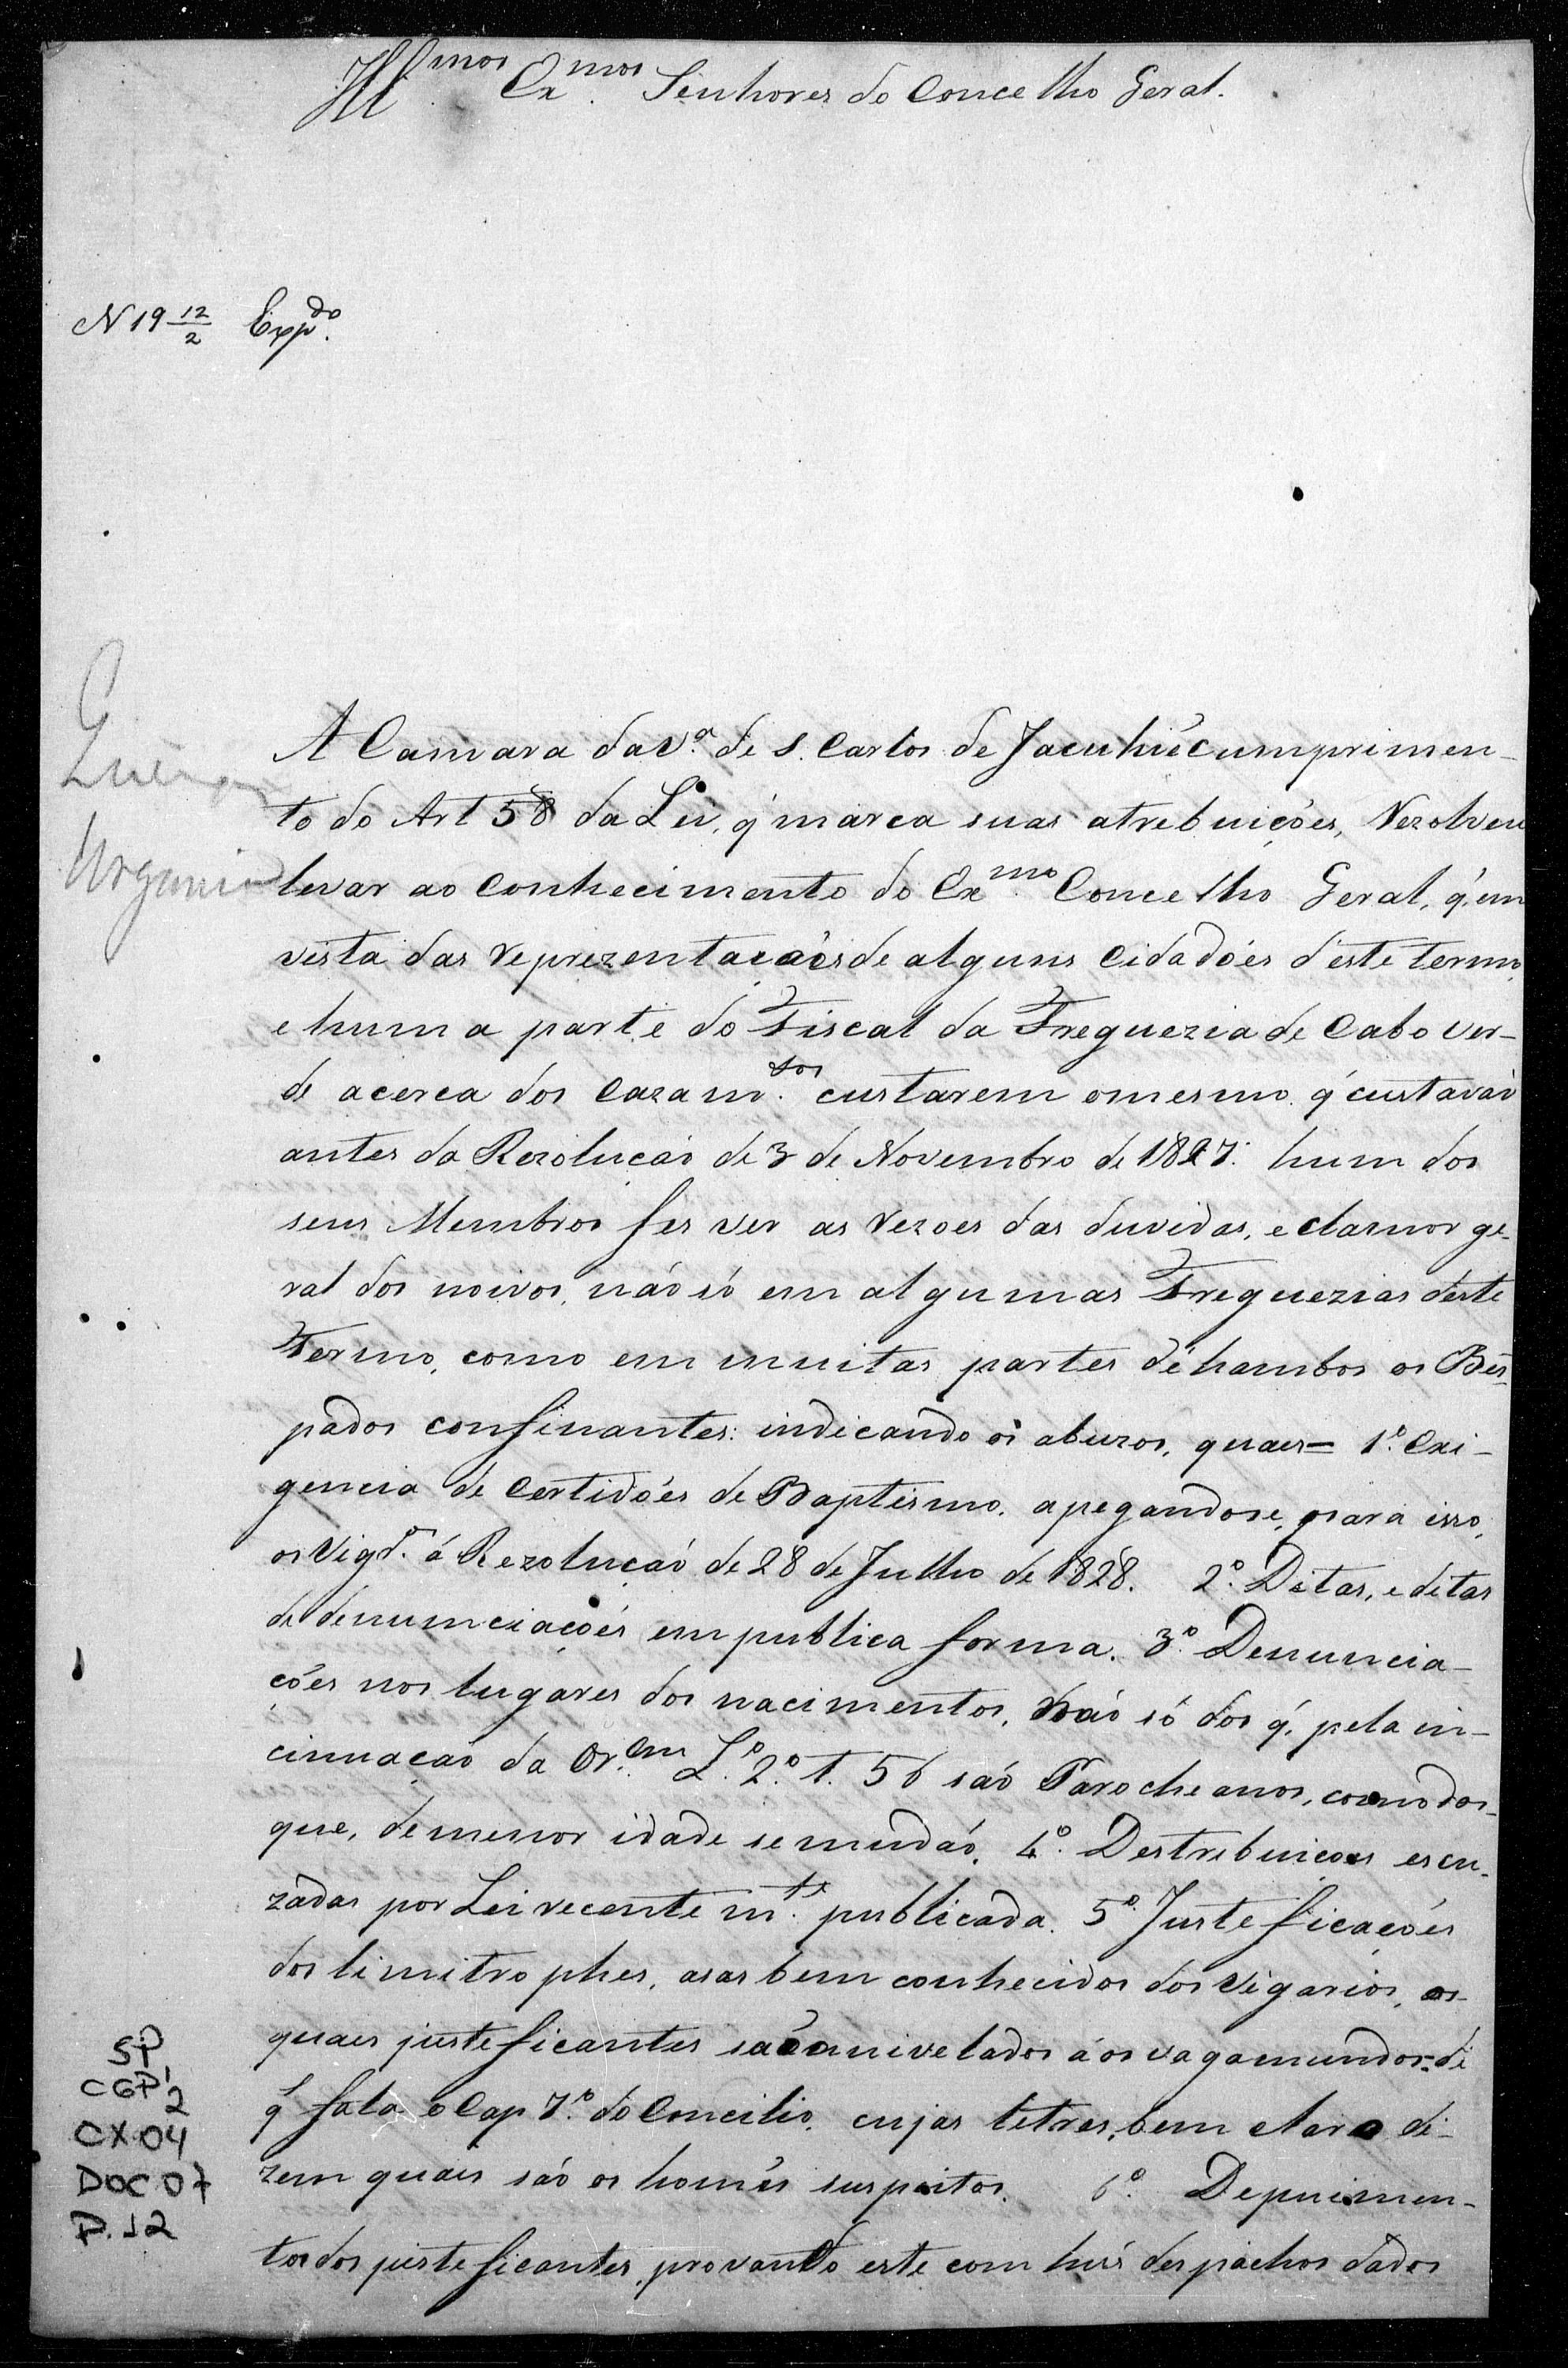 Illmos Exmos Senhores do Concelho Geral.
N 19 12/2 Expdo.
A Camara da Vª. de S. Carlos de Jacuhiécumprimen-
to do Art 58 da Lei, q' marca suas atrebuições, Rezolveu
Urgencia
levar ao Conhecimento do Exmo. Concelho Geral, q' em
vista das reprezentaçaõsde alguns Cidadóes d'este termo,
e huma parte do Fiscal da Freguezia de Cabo Ver-
de acerca dos Cazamtos. custarem omesmo q' custavaõ
antes da Rezoluçaõ de 3 de Novembro de 1827: hum dos
seus Membros fes ver as rezoes das duvidas, e clamor ge-
ral dos noivos, náo só em algumas Freguezias déste
Termo, como em muitas partes déhambos os Bis-
pados confinantes: indicando os abuzos, quaes= 1º. Exi-
gencia de Certidóes de Baptismo, apegandose, para isso,
os Vigrº. á Rezoluçaõ de 28 de Julho de 1828. 2º. Ditas, e ditas
de denunciaçóes empublica forma. 3º. Denuncia-
çóes nos lugares dos nacimentos, náo só dos q', pela in-
cinuaçaõ da Or.em L.º 2.º t. 56 saõ Parocheanos, comodos
que, demenor idade semudaõ. 4º. Destrebuicoes escu-
zadas por Leirecentemte. publicada. 5º. Justeficaçóes
dos limitrophes, asas bem conhecidos dos Vigarios, os
quaes justeficantes saõ anivelados áos vagamundos- de
q' fala o Cap 7º. do Concilio, cujas letras, bem claro di-
zem quais são os homés suspeitos. 6º. Depuimen-
tos dos justeficantes, provando este com hús despachos dados
SP
CGP1
2
CX.04
DOC 07
P.12